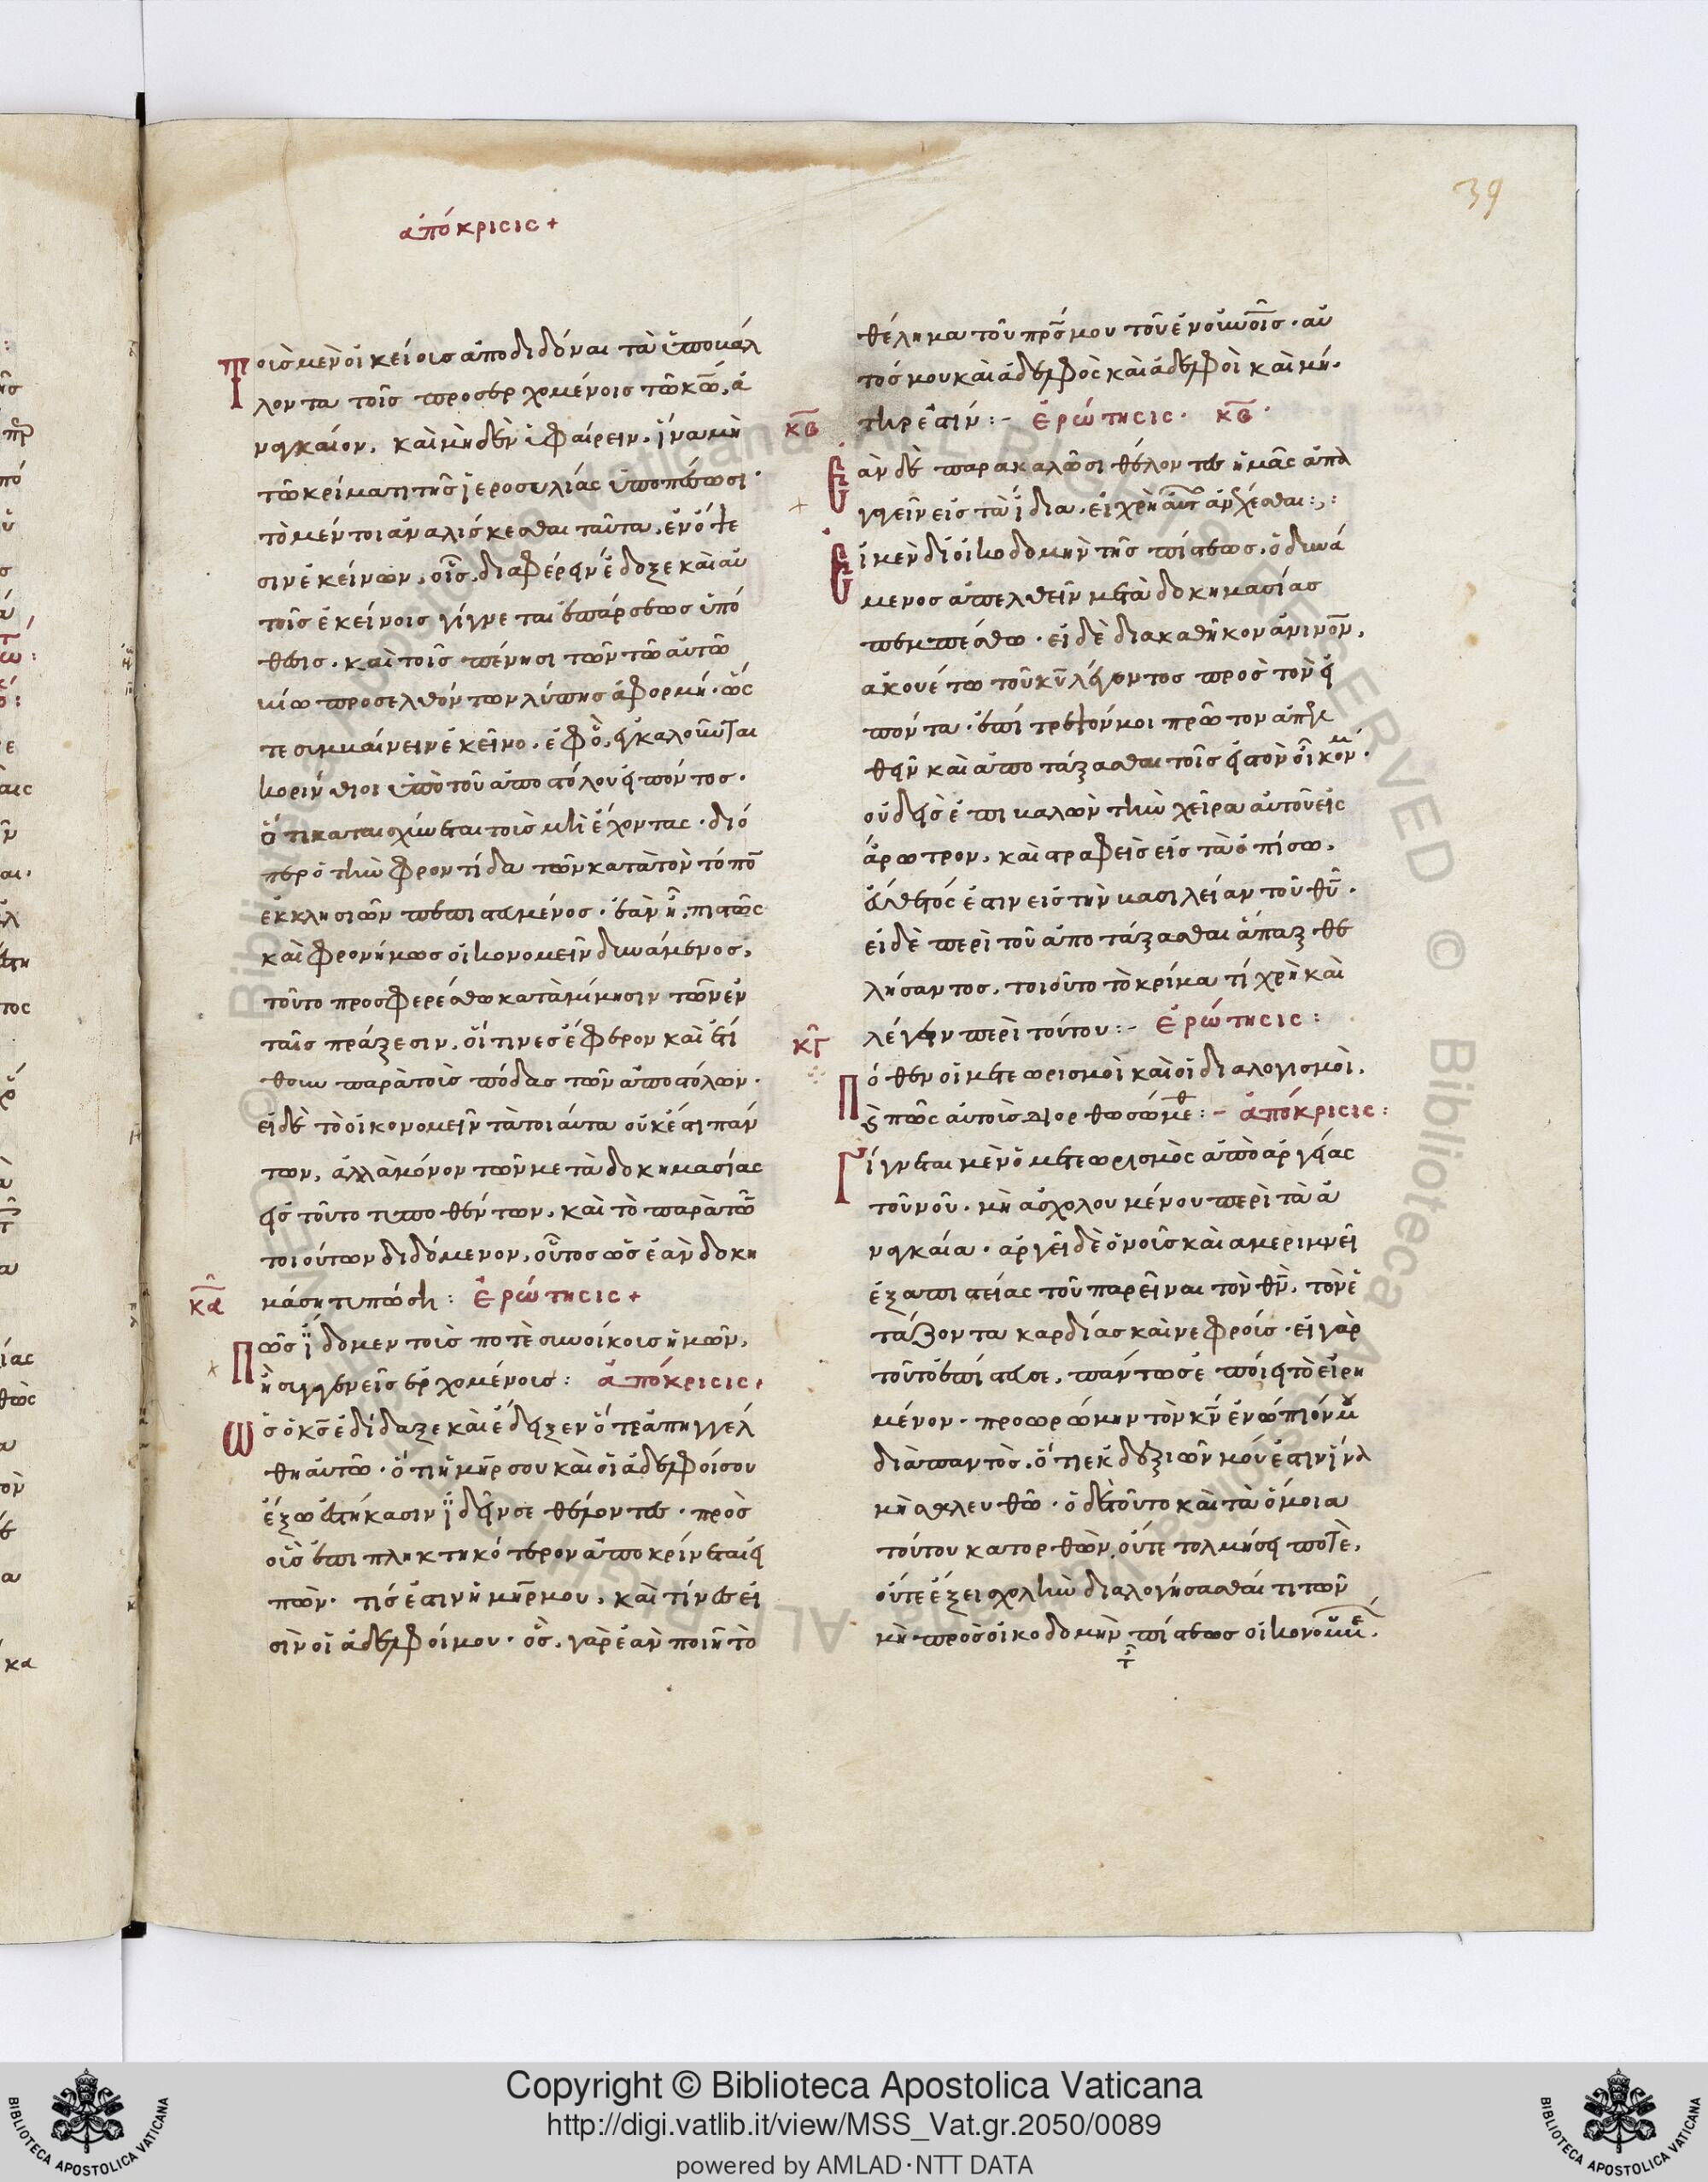 39
ἀπόκρισις +
Τοῖς μὲν οἰκείοις ἀποδιδόναι τὰ ἐπιβάλ
λοντα τοῖς προσερχομένοις τῶ κω, ἀ
ναγκαῖον. καὶ μηδὲν ὑφαίρειν. ἵνα μὴ
τῶ κρίματι τῆς ἱεροσυλίας ὑποπέσωσι.
τὸ μέντοι ἀναλίσκεσθαι ταῦτα, ἐν ὄψε
σιν ἐκείνων, οἷς διαφέρειν ἔδοξε καὶ αὐ
τοῖς ἐκείνοις γίγνεται ἐπάρσεως ὑπό
θεσις. καὶ τοῖς πένησι τῶν τῶ αὐτῶ
βίω προσελθόντων λύπης ἀφορμή. ὥς
τε συμβαίνειν ἐκεῖνο. ἐφ ὃ, ἐγκαλοῦνται
κορίνθιοι ὑπὸ τοῦ ἀποστόλου εἰπόντος.
ὅτι καταισχύνεται τοὺς μὴ ἔχοντας. διό
περ ὁ τὴν φροντίδα τῶν κατὰ τὸν τόπον
ἐκκλησιῶν πεπιστευμένος. ἐὰν ἦ, πιστὸς
καὶ φρονήμως οἰκονομεῖν δυνάμενος,
τοῦτο προσφερέσθω κατὰ μίμησιν τῶν ἐν
ταῖς πράξεσιν, οἵτινες ἔφερον καὶ ἐτί
θουν παρὰ τοὺς πόδας τῶν ἀποστόλων.
εἰ δὲ τὸ οἰκονομεῖν τὰ τοιαύτα οὐκ ἔστι πάν
των, ἀλλὰ μόνον τῶν μετὰ δοκημασίας
εἰς τοῦτο τυποθέντων, καὶ τὸ παρὰ τῶν
τοιούτων διδόμενον, οὗτος ὡς ἐὰν δοκη
κα μάση τυπώση : ἐρώτησις +
Πῶς ἴδομεν τοῖς ποτὲ συνοίκοις ἡμῶν,
ἢ συγγενεῖς ἐρχομένοις : ἀπόκρισις.
Ὡς ὁ κς ἐδίδαξε καὶ ἔδειξεν ὅτε ἀπηγγέλ
θη αὐτῶ. ὅτι ἡ μηρ σου καὶ οἱ ἀδελφοί σου
ἔξω ἑστήκασιν ἰδεῖν σε θέλοντες. πρὸς
οὓς ἐπιπληκτηκότερον ἀποκρίνεται εἰ
πών. τίς ἐστιν ἡ μηρ μου, καὶ τίνες εἰ
σὶν οἱ ἀδελφοί μου. ὃς, γὰρ ἐὰν ποιῆ τὸ
θέλημα τοῦ πρς μου τοῦ ἐν οὐνοῖς. αὐ
τός μου καὶ ἀδελφὸς καὶ ἀδελφὴ καὶ μή.
κβ τηρ ἐστίν :- ἐρώτησις. κβ.
Ἐὰν δὲ παρακαλῶσι θέλοντες ἡμᾶς ἀπα
γγεῖν εἰς τὰ ἴδια. εἰ χρὴ αὐτ ἀνέχεσθαι :,:
Εἰ μὲν δι οἰκοδομὴν τῆς πίστεως, ὁ δυνά
μενος ἀπελθεῖν μετὰ δοκημασίας
πεμπέσθω. εἰ δὲ διὰ καθῆκον ἀνινον,
ἀκουέτω τοῦ κυ λέγοντος πρὸς τὸν εἰ
πόντα. ἐπίτρεψόν μοι πρῶτον ἀπελ
θεῖν καὶ ἀποτάξασθαι τοῖς εἰς τὸν οἶκόν μου.
οὐδεὶς ἐπιβαλὼν τὴν χεῖρα αὐτοῦ εἰς
ἄρωτρον, καὶ στραφεὶς εἰς τὰ ὀπίσω,
εὔθετός ἐστιν εἰς τὴν βασιλείαν τοῦ θυ.
εἰ δὲ περὶ τοῦ ἀποτάξασθαι ἅπαξ θε
λήσαντος, τοιοῦτο τὸ κρίμα τί χρὴ καὶ
κγ λέγειν περὶ τούτου :- ἐρώτησις :
Πόθεν οἱ μετεωρισμοὶ καὶ οἱ διαλογισμοὶ,
καὶ πῶς αὐτοὺς διορθωσώμεθ :- ἀπόκρισις :
Γίγνεται μὲν ὁ μετεωρισμὸς ἀπὸ ἀργείας
τοῦ νοῦ. μὴ ἀσχολουμένου περὶ τὰ ἀ
ναγκαῖα. ἀργεῖ δὲ ὁ νοῦς καὶ ἀμεριμνεῖ
ἐξ ἀπιστείας τοῦ παρεῖναι τὸν θν, τὸν ἐ
τάζοντα καρδίας καὶ νεφρούς. εἰ γὰρ
τοῦτο ἐπίστευσε, πάντως ἐποίει τὸ εἰρη
μένον. προωρώμην τὸν κν ἐνώπιόν μου
διὰ παντὸς, ὅτι ἐκ δεξιῶν μού ἐστιν ἵνα
μὴ σαλευθῶ. ὁ δὲ τοῦτο καὶ τὰ ὅμοια
τούτου κατορθῶν, οὔτε τολμήσει ποτὲ,
οὔτε ἕξει σχολὴν διαλογήσασθαί τι τῶν
μὴ πρὸς οἰκοδομὴν πίστεως οἰκονομουμέν.